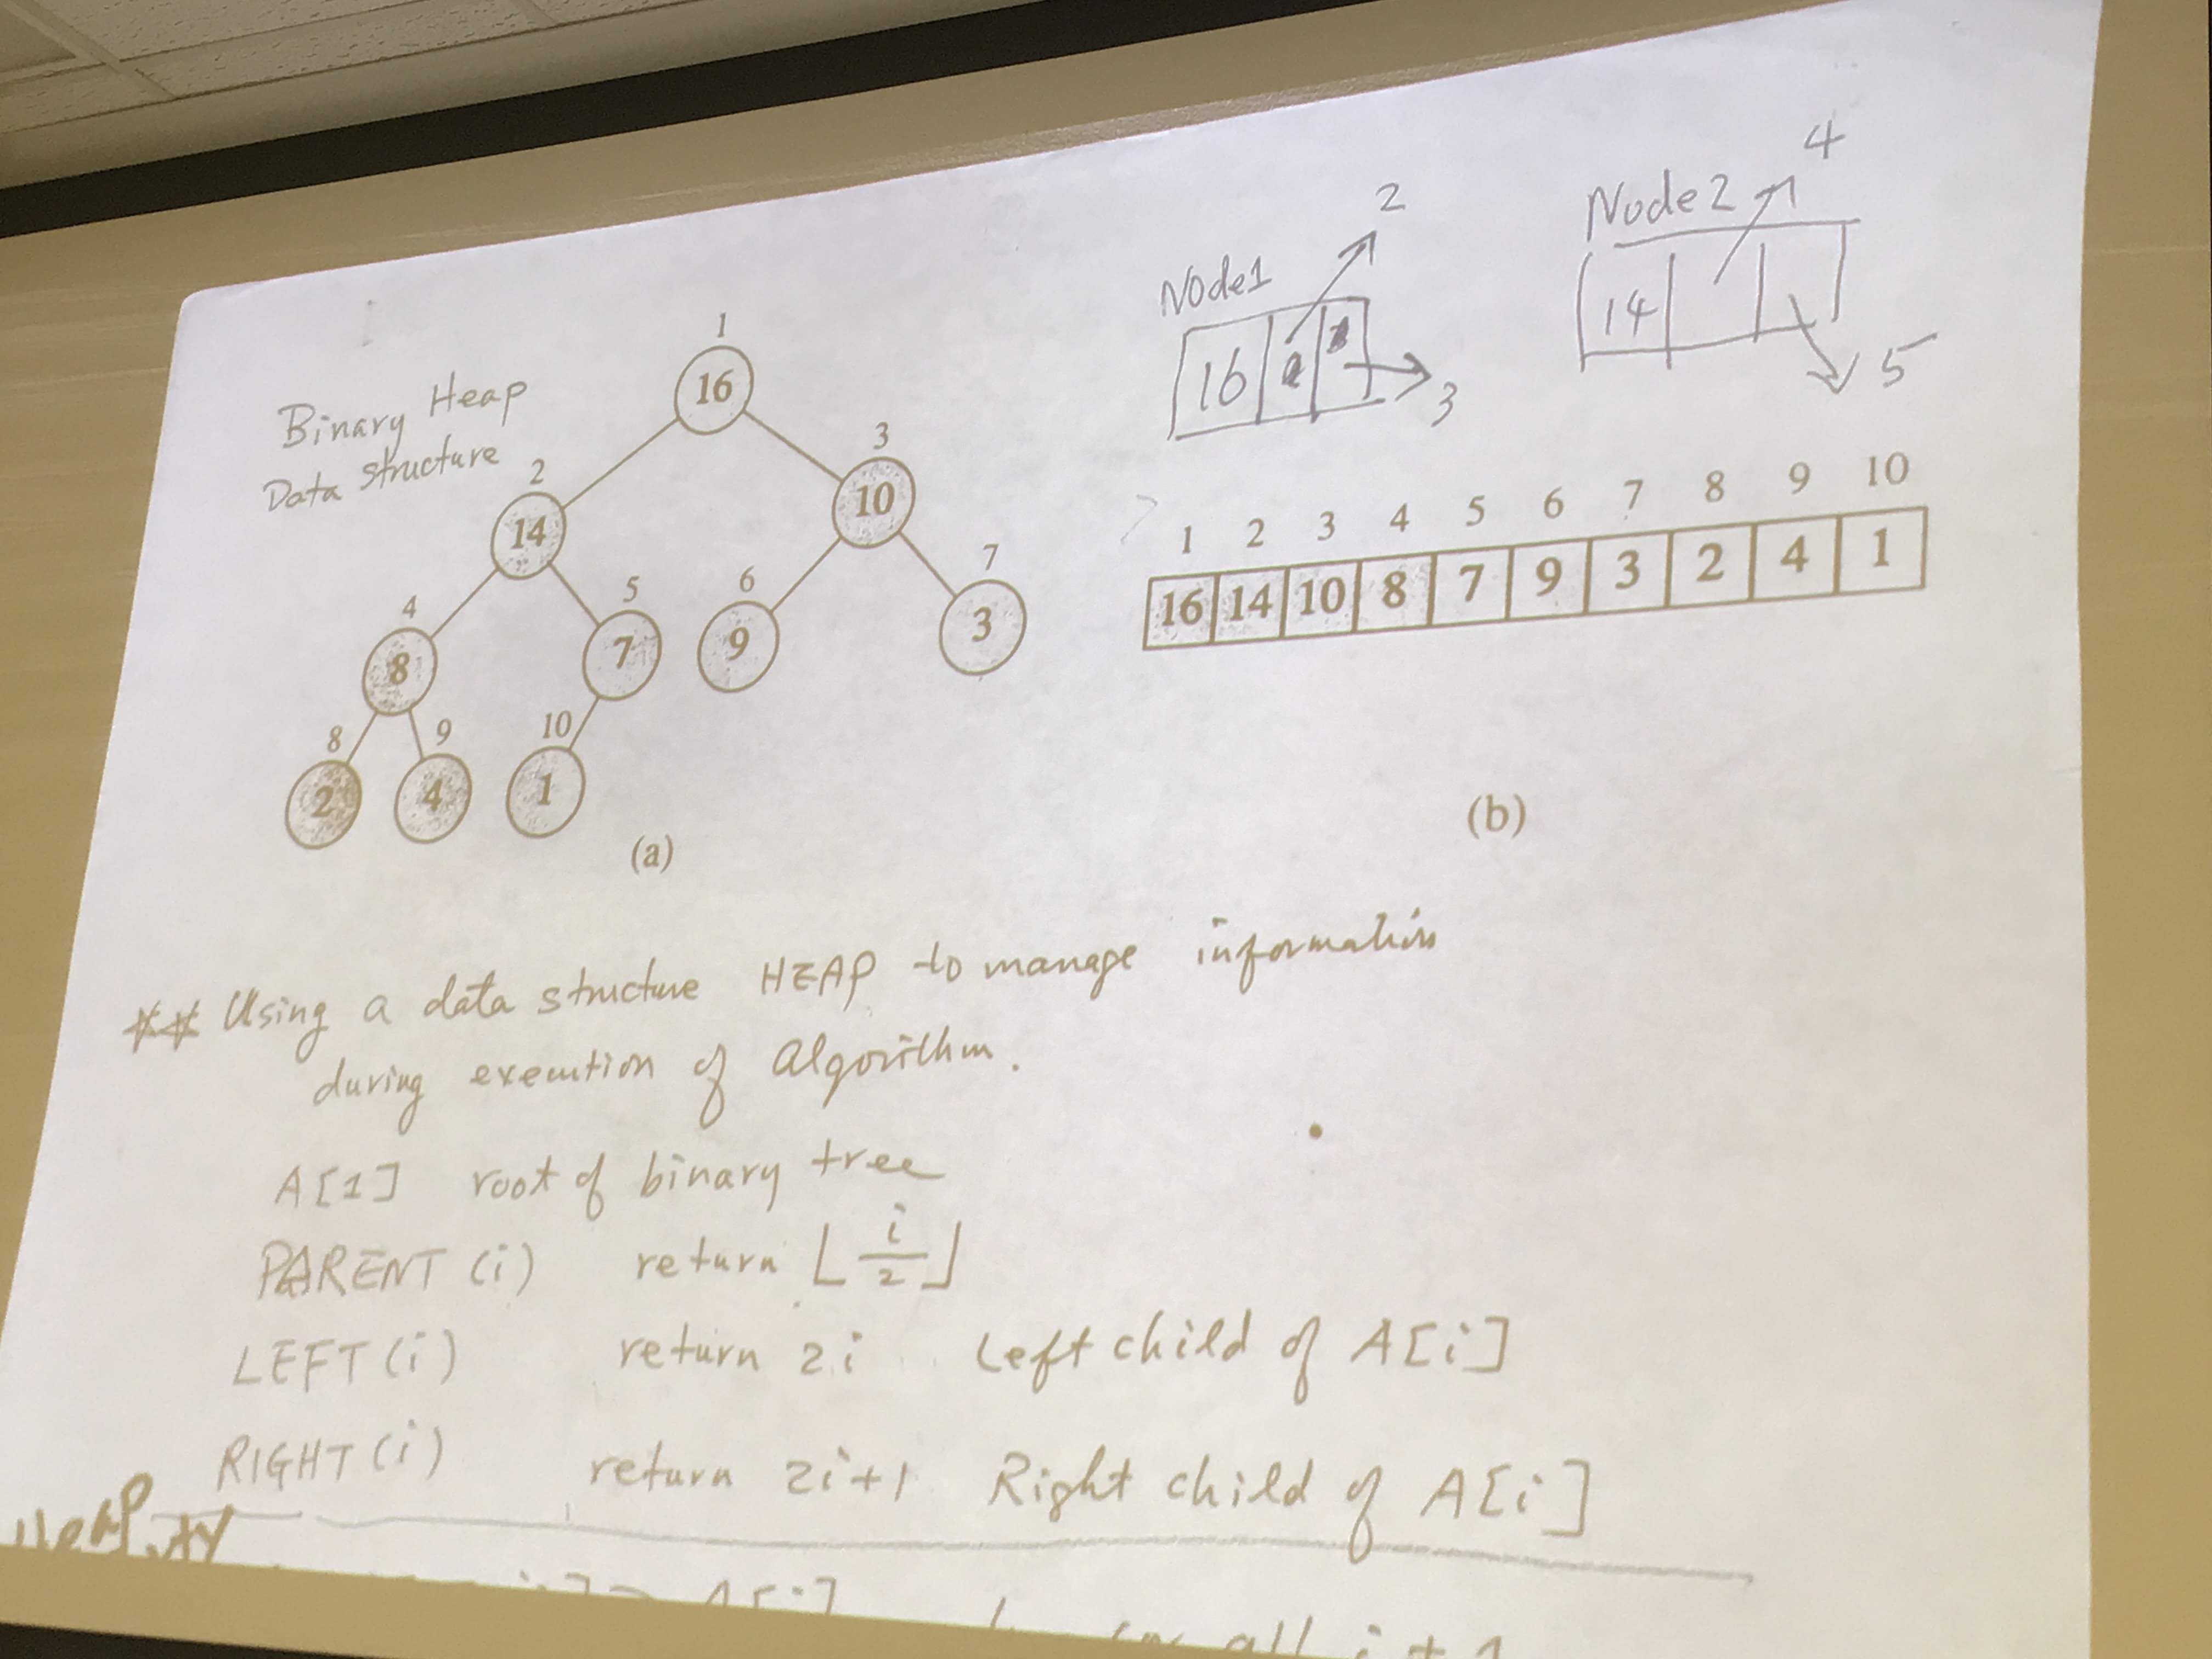 Binary Heap
Data structure
1
16
2
14
3
10
4
8
5
7
6
9
7
3
8
2
9
4
10
1
(a)
Node1
16
2
3
Node2
14
4
5
1 2 3 4 5 6 7 8 9 10
16 14 10 8 7 9 3 2 4 1
(b)
** Using a data structure HEAP to manage information
during execution of Algorithm.
A[1] root of binary tree
PARENT (i) return ⌊i/2⌋
LEFT (i) return 2i Left child of A[i]
RIGHT (i) return 2i+1 Right child of A[i]
A[i] for all i ≠ 1